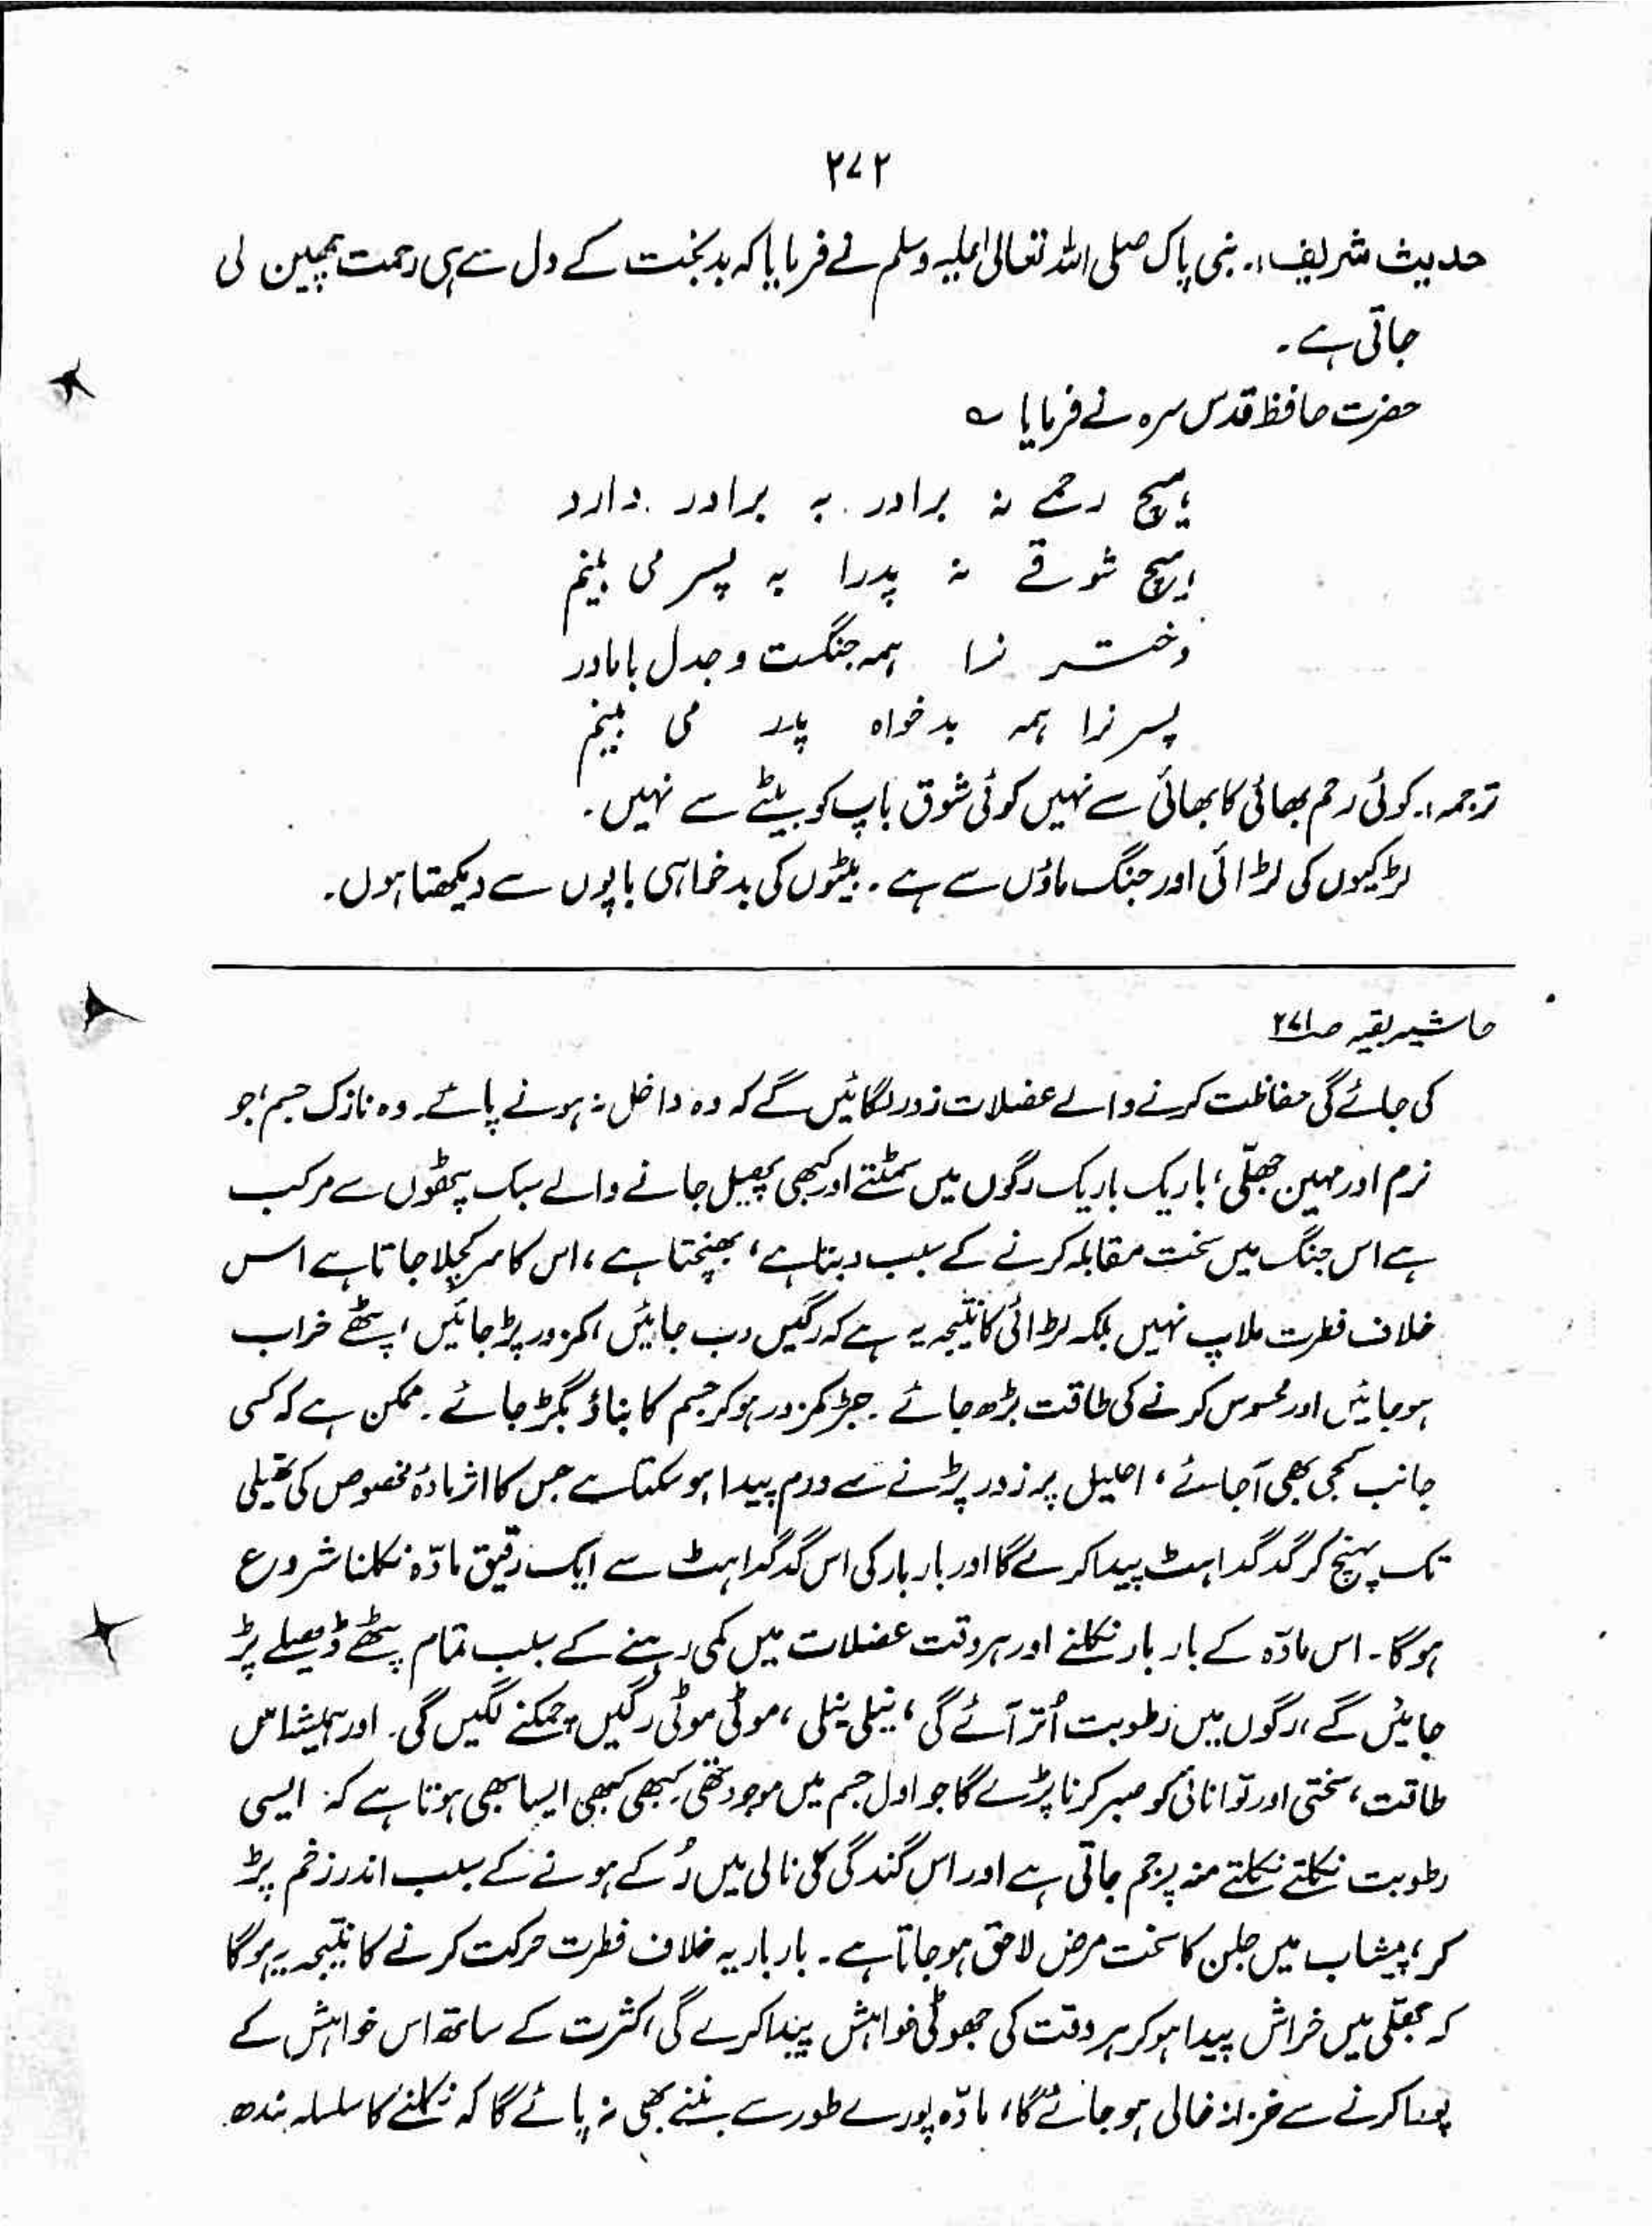 ۲۷۲
حدیث شریف:۔ نبی پاک صلی اللہ تعالیٰ علیہ وسلم نے فرمایا کہ بدبخت کے دل سے ہی رحمت چھین لی
جاتی ہے۔
حضرت حافظ قدس سرہ نے فرمایا ؎
ہیچ رحمے نہ برادر بہ برادر دارد
ہیچ شوقے نہ پدر را بہ پسر می بینم
دختر نرا ہمہ جنگست و جدل با مادر
پسر نرا ہمہ بدخواہ پدر می بینم
ترجمہ:۔ کوئی رحم بھائی کا بھائی سے نہیں کوئی شوق باپ کو بیٹے سے نہیں۔
لڑکیوں کی لڑائی اور جنگ ماؤں سے ہے۔ بیٹوں کی بدخواہی باپوں سے دیکھتا ہوں۔
حاشیہ بقیہ صہ ۲۷۱
کی جائے گی حفاظت کرنے والے عضلات زور لگائیں گے کہ وہ داخل نہ ہونے پائے۔ وہ نازک جسم، جو
نرم اور مہین جھلّی، باریک باریک رگوں میں سمٹتے اور کبھی پھیل جانے والے سبک پٹھوں سے مرکب
ہے اس جنگ میں سخت مقابلہ کرنے کے سبب دبتا ہے، بھنچتا ہے، اس کا سر کچلا جاتا ہے اس
خلاف فطرت ملاپ نہیں بلکہ لڑائی کا نتیجہ یہ ہے کہ رگیں دب جائیں، کمزور پڑ جائیں، پٹھے خراب
ہو جائیں اور محسوس کرنے کی طاقت بڑھ جائے۔ جڑ کمزور ہو کر جسم کا بناؤ بگڑ جائے۔ ممکن ہے کہ کسی
جانب کجی بھی آ جائے، احلیل پر زور پڑنے سے ورم پیدا ہو سکتا ہے جس کا اثر مادۂ مخصوص کی تھیلی
تک پہنچ کر گدگداہٹ پیدا کرے گا اور بار بار کی اس گدگداہٹ سے ایک رقیق مادّہ نکلنا شروع
ہوگا۔ اس مادّہ کے بار بار نکلنے اور ہر وقت عضلات میں کمی رہنے کے سبب تمام پٹھے ڈھیلے پڑ
جائیں گے، رگوں میں رطوبت اُتر آئے گی، نیلی نیلی، موٹی موٹی رگیں چمکنے لگیں گی۔ اور ہمیشہ اس
طاقت، سختی اور توانائی کو صبر کرنا پڑے گا جو اول جسم میں موجود تھی۔ کبھی کبھی ایسا بھی ہوتا ہے کہ ایسی
رطوبت نکلتے نکلتے منہ پر جم جاتی ہے اور اس گندگی کی نالی میں رُکے ہونے کے سبب اندر زخم پڑ
کر، پیشاب میں جلن کا سخت مرض لاحق ہو جاتا ہے۔ بار بار یہ خلاف فطرت حرکت کرنے کا نتیجہ یہ ہوگا
کہ جھلّی میں خراش پیدا ہو کر ہر وقت کی جھوٹی خواہش پیدا کرے گی، کثرت کے ساتھ اس خواہش کے
پورا کرنے سے خزانہ خالی ہو جائے گا، مادّہ پورے طور سے بننے بھی نہ پائے گا کہ نکلنے کا سلسلہ بندھ